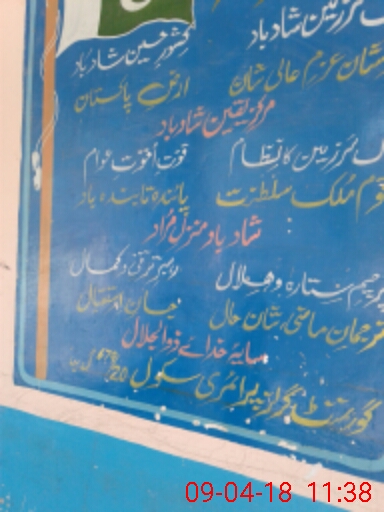 سرزمین شاد باد کشور حسین شاد باد
نشان عزم عالی شان ارض پاکستان
مرکز یقین شاد باد
سرزمین کا نظام قوت اخوت عوام
قوم ملک سلطنت پائندہ تابندہ باد
شاد باد منزل مراد
پرچم ستارہ و ہلال رہبر ترقی و کمال
ترجمان ماضی شان حال جان استقبال
سایۂ خدائے ذوالجلال
گورنمنٹ گرلز پرائمری سکول
09-04-18 11:38